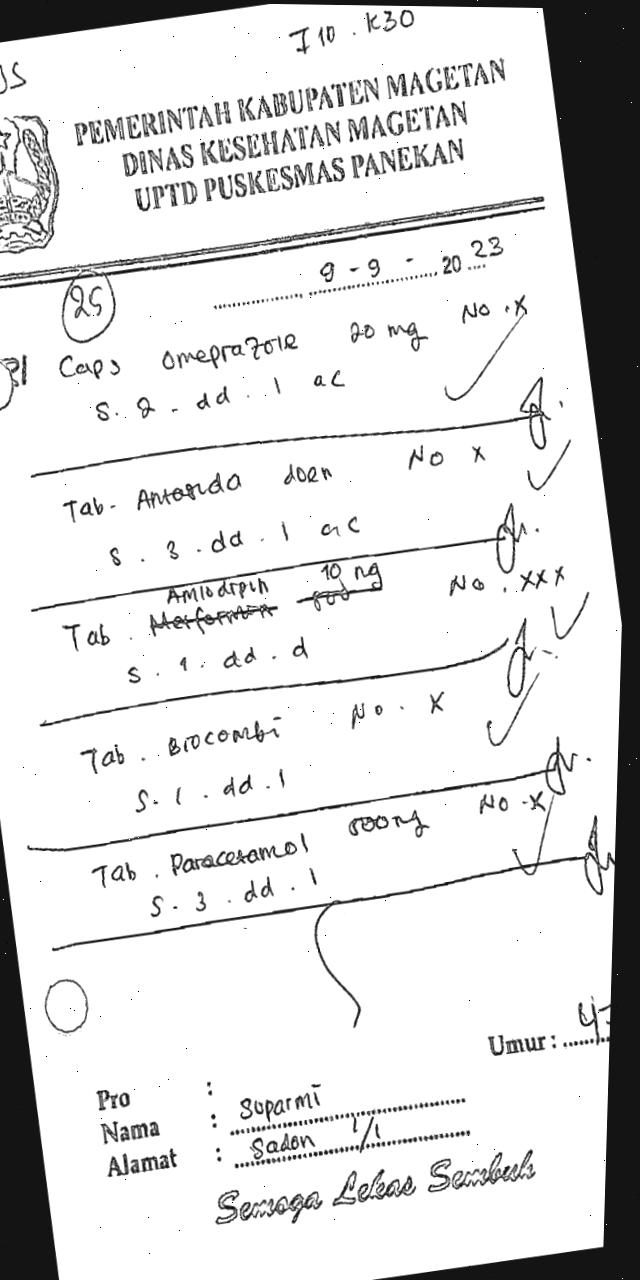 I10 . K30
US
PEMERINTAH KABUPATEN MAGETAN
DINAS KESEHATAN MAGETAN
UPTD PUSKESMAS PANEKAN
9 - 9 - 2023
25
Caps Omeprazole 20 mg No . X
S. 2 - dd . 1 ac
Tab - Antasida doen No X
S . 3 . dd . 1 ac
Amlodipin 10 mg
Tab . Metformin 500 No . XXX
S . 1 . dd . d
Tab . Biocombi No . X
S. 1 . dd . 1
Tab . Paracetamol 500 mg No . X
S . 3 . dd . 1
Umur :
Pro :
Nama : Suparmi
Alamat : Sadon 1/1
Semoga Lekas Sembuh